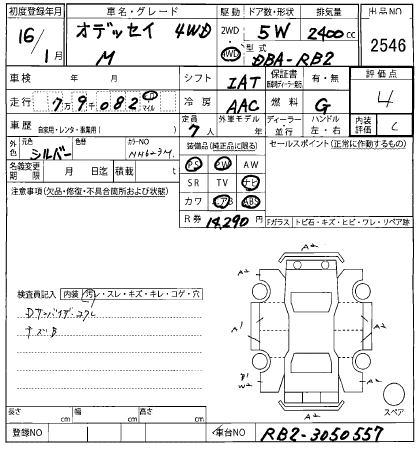 初度登録年月 車名・グレード 駆動 ドア数・形状 排気量 出品NO
16/1月 オデッセイ 4WD M 2WD 4WD 5W 2400cc 2546
型式 DBA-RB2
車検 年 月 シフト IAT 保証書 有・無 評価点 4
走行 7万9千082 マイル 冷房 AAC 燃料 G
車歴 自家用・レンタ・事業用( ) 定員 7人 外車モデル 年 ディーラー 並行 ハンドル 左・右 内装評価 C
外色 元色 シルバー 色替 カラーNO NH623M 装備品(純正品に限る) セールスポイント(正常に作動するもの)
名義変更期限 月 日迄 積載 t PS PW AW
注意事項(欠品・修復・不具合箇所および状態) SR TV ナビ
カワ エアB ABS
R券 14,290円
Fガラス トビ石・キズ・ヒビ・ワレ・リペア跡
A2
検査員記入 内装 汚レ・スレ・キズ・キレ・コゲ・穴
A2 W2
A1 A1
W2
A2
スペア
長さ cm 幅 cm 高さ cm
登録NO 車台NO RB2-3050557